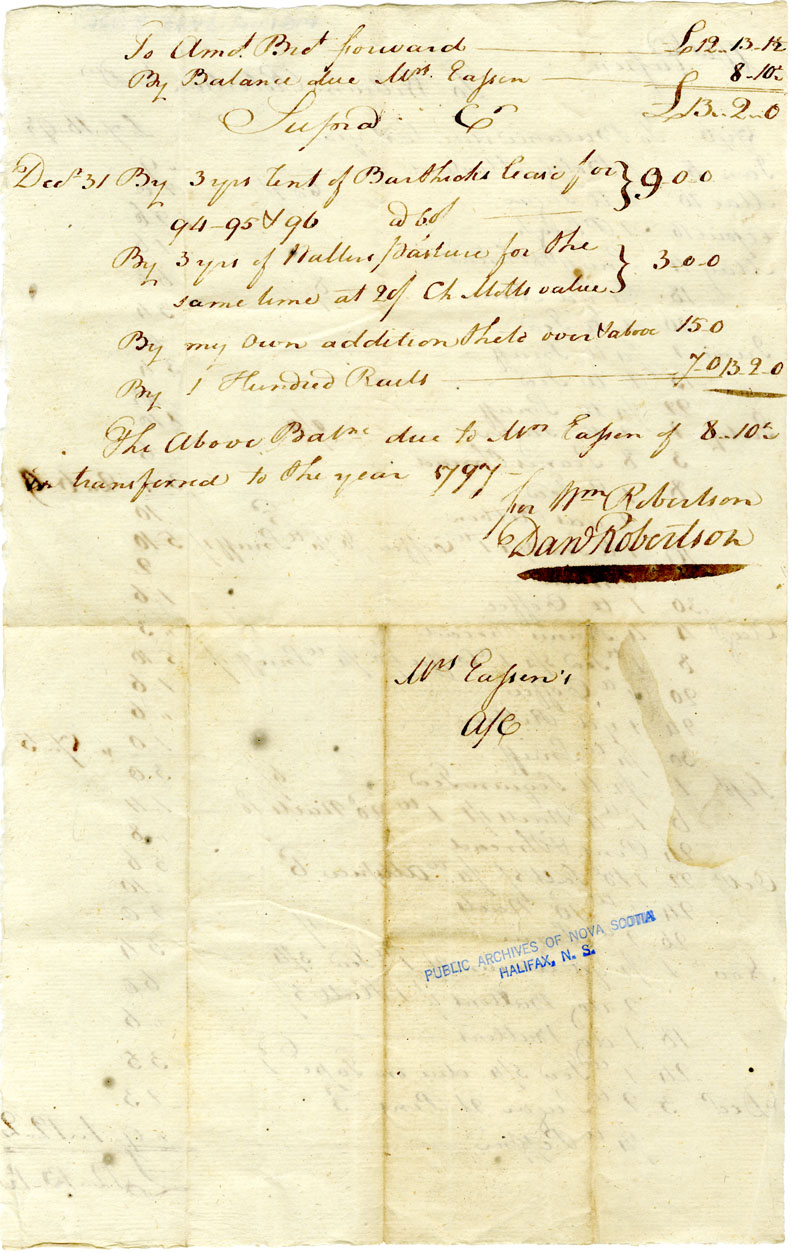 To Amot. Brot. forward £12-13-1½
By Balance due Mrs. Eassen 8-10½
£13-2-0
Supra Cr
Decr. 31 By 3 yrs rent of lease for } 9-0-0
94-95 & 96 @ 60/
By 3 yrs of pasture for the } 3-0-0
same time at 20/ Ch Motts value
By my own addition thats over & above 15-0
By 1 Hundred Rails 7-0 13-2-0
The Above Balnc due to Mrs Eassen of 8-10½
transferred to the year 1797
for Wm Robertson
Danl Robertson
Mrs Eassen's
a/c
PUBLIC ARCHIVES OF NOVA SCOTIA
HALIFAX, N. S.